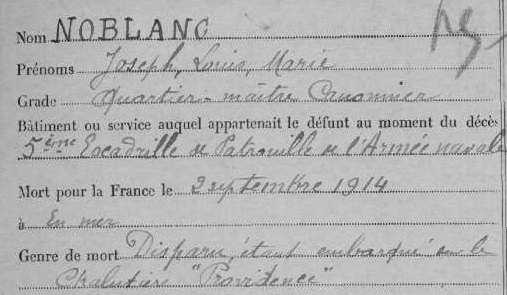 Nom NOBLANC
Prénoms Joseph, Louis, Marie
Grade Quartier-maître Canonnier
Bâtiment ou service auquel appartenait le défunt au moment du décès
5ème Escadrille de Patrouille de l'Armée navale
Mort pour la France le 2 septembre 1914
à En mer
Genre de mort Disparu, étant embarqué sur le
Chalutier "Providence"